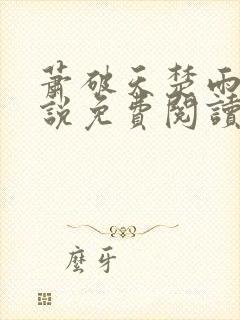 蕭破天楚雨
說免費閱讀
麼牙